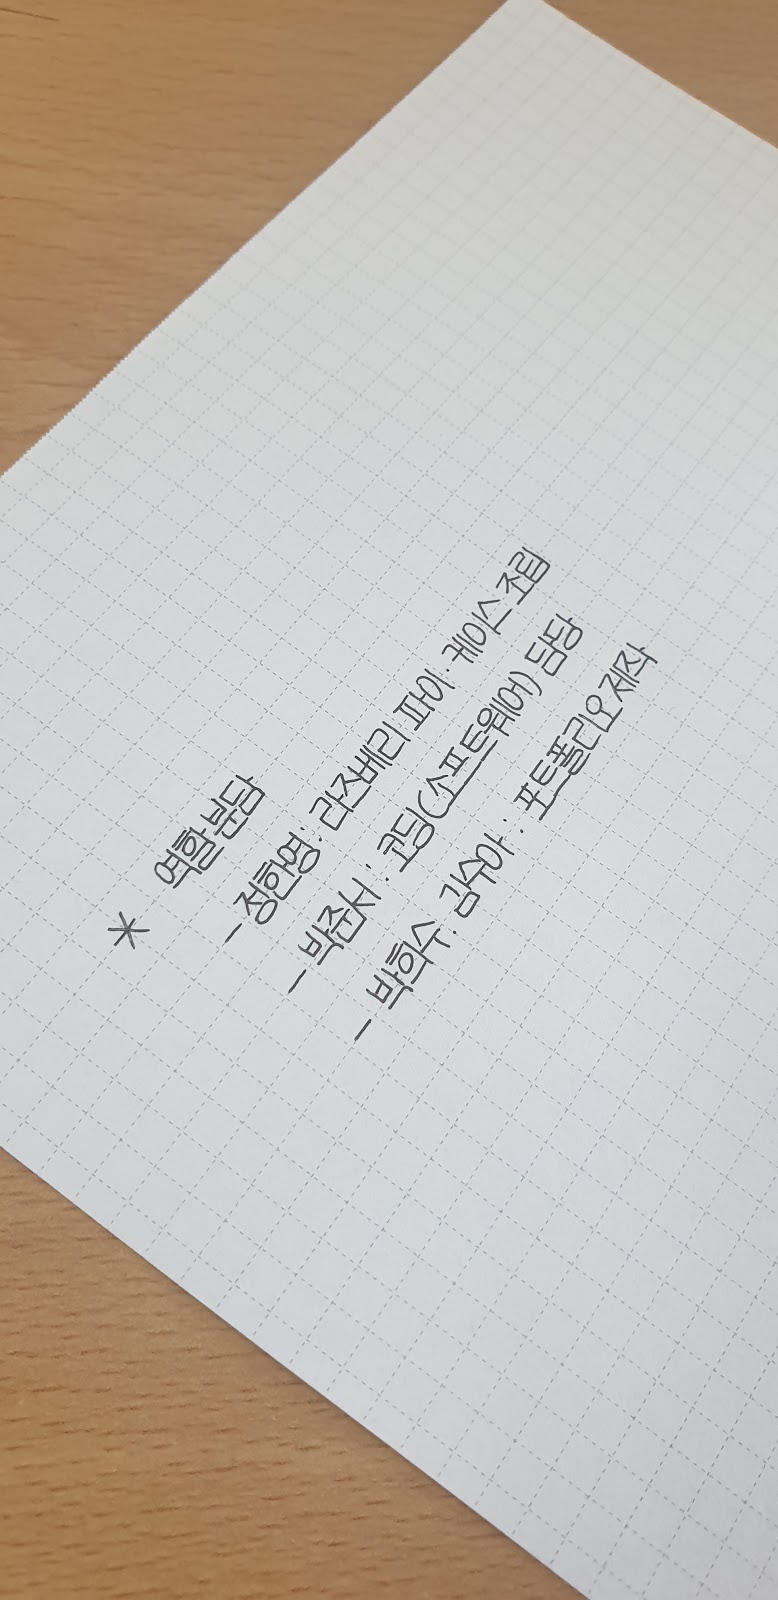 * 역할 분담
- 정한영 : 라즈베리 파이·케이스 조립
- 박준서 : 코딩(소프트웨어) 담당
- 박희수·김수아 : 포트폴리오 제작